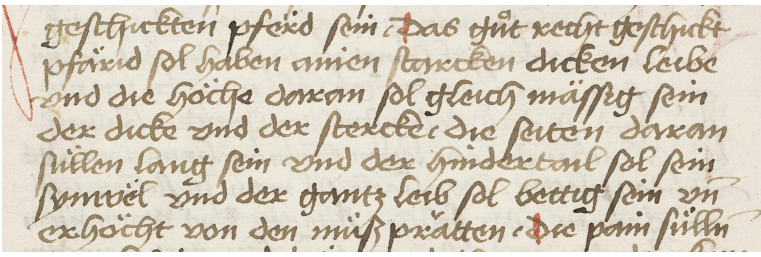 geschickten pfërd sein. Das gůt recht geschickt
pfärid sol haben ainen starcken dicken leibe
vnd die höche daran sol gleich mässig sein
der dicke vnd der stercke. die seiten daran
süllen lang sein vnd der hindertail sol sein
synwël vnd der gantz leib sol bettig sein vn̄
erhöcht von den müsz prätten. Die pain sülln